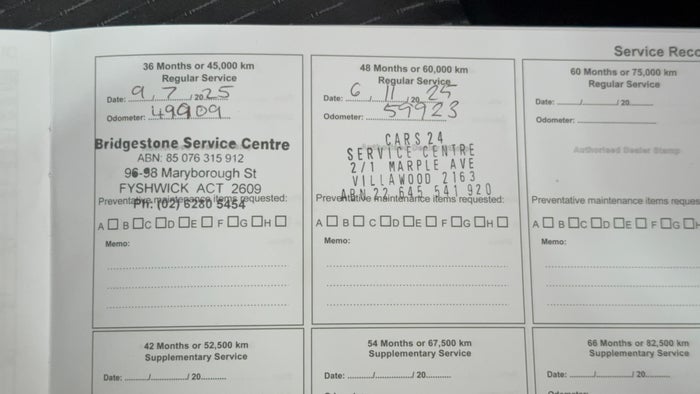 Service Reco
36 Months or 45,000 km
Regular Service
Date: 9 / 7 / 2025
Odometer: 49909
Bridgestone Service Centre
ABN: 85 076 315 912
96-98 Maryborough St
FYSHWICK ACT 2609
Ph: (02) 6280 5454
Preventative maintenance items requested:
A B C D E F G H
Memo:
48 Months or 60,000 km
Regular Service
Date: 6 / 11 / 20 25
Odometer: 59923
CARS 24
SERVICE CENTRE
2/1 MARPLE AVE
VILLAWOOD 2163
ABN 22 645 541 920
Preventative maintenance items requested:
A B C D E F G H
Memo:
60 Months or 75,000 km
Regular Service
Date: / / 20
Odometer:
Authorised Dealer Stamp
Preventative maintenance items reques
A B C D E F G H
Memo:
42 Months or 52,500 km
Supplementary Service
Date: / / 20
54 Months or 67,500 km
Supplementary Service
Date: / / 20
66 Months or 82,500 km
Supplementary Service
Date: / / 20